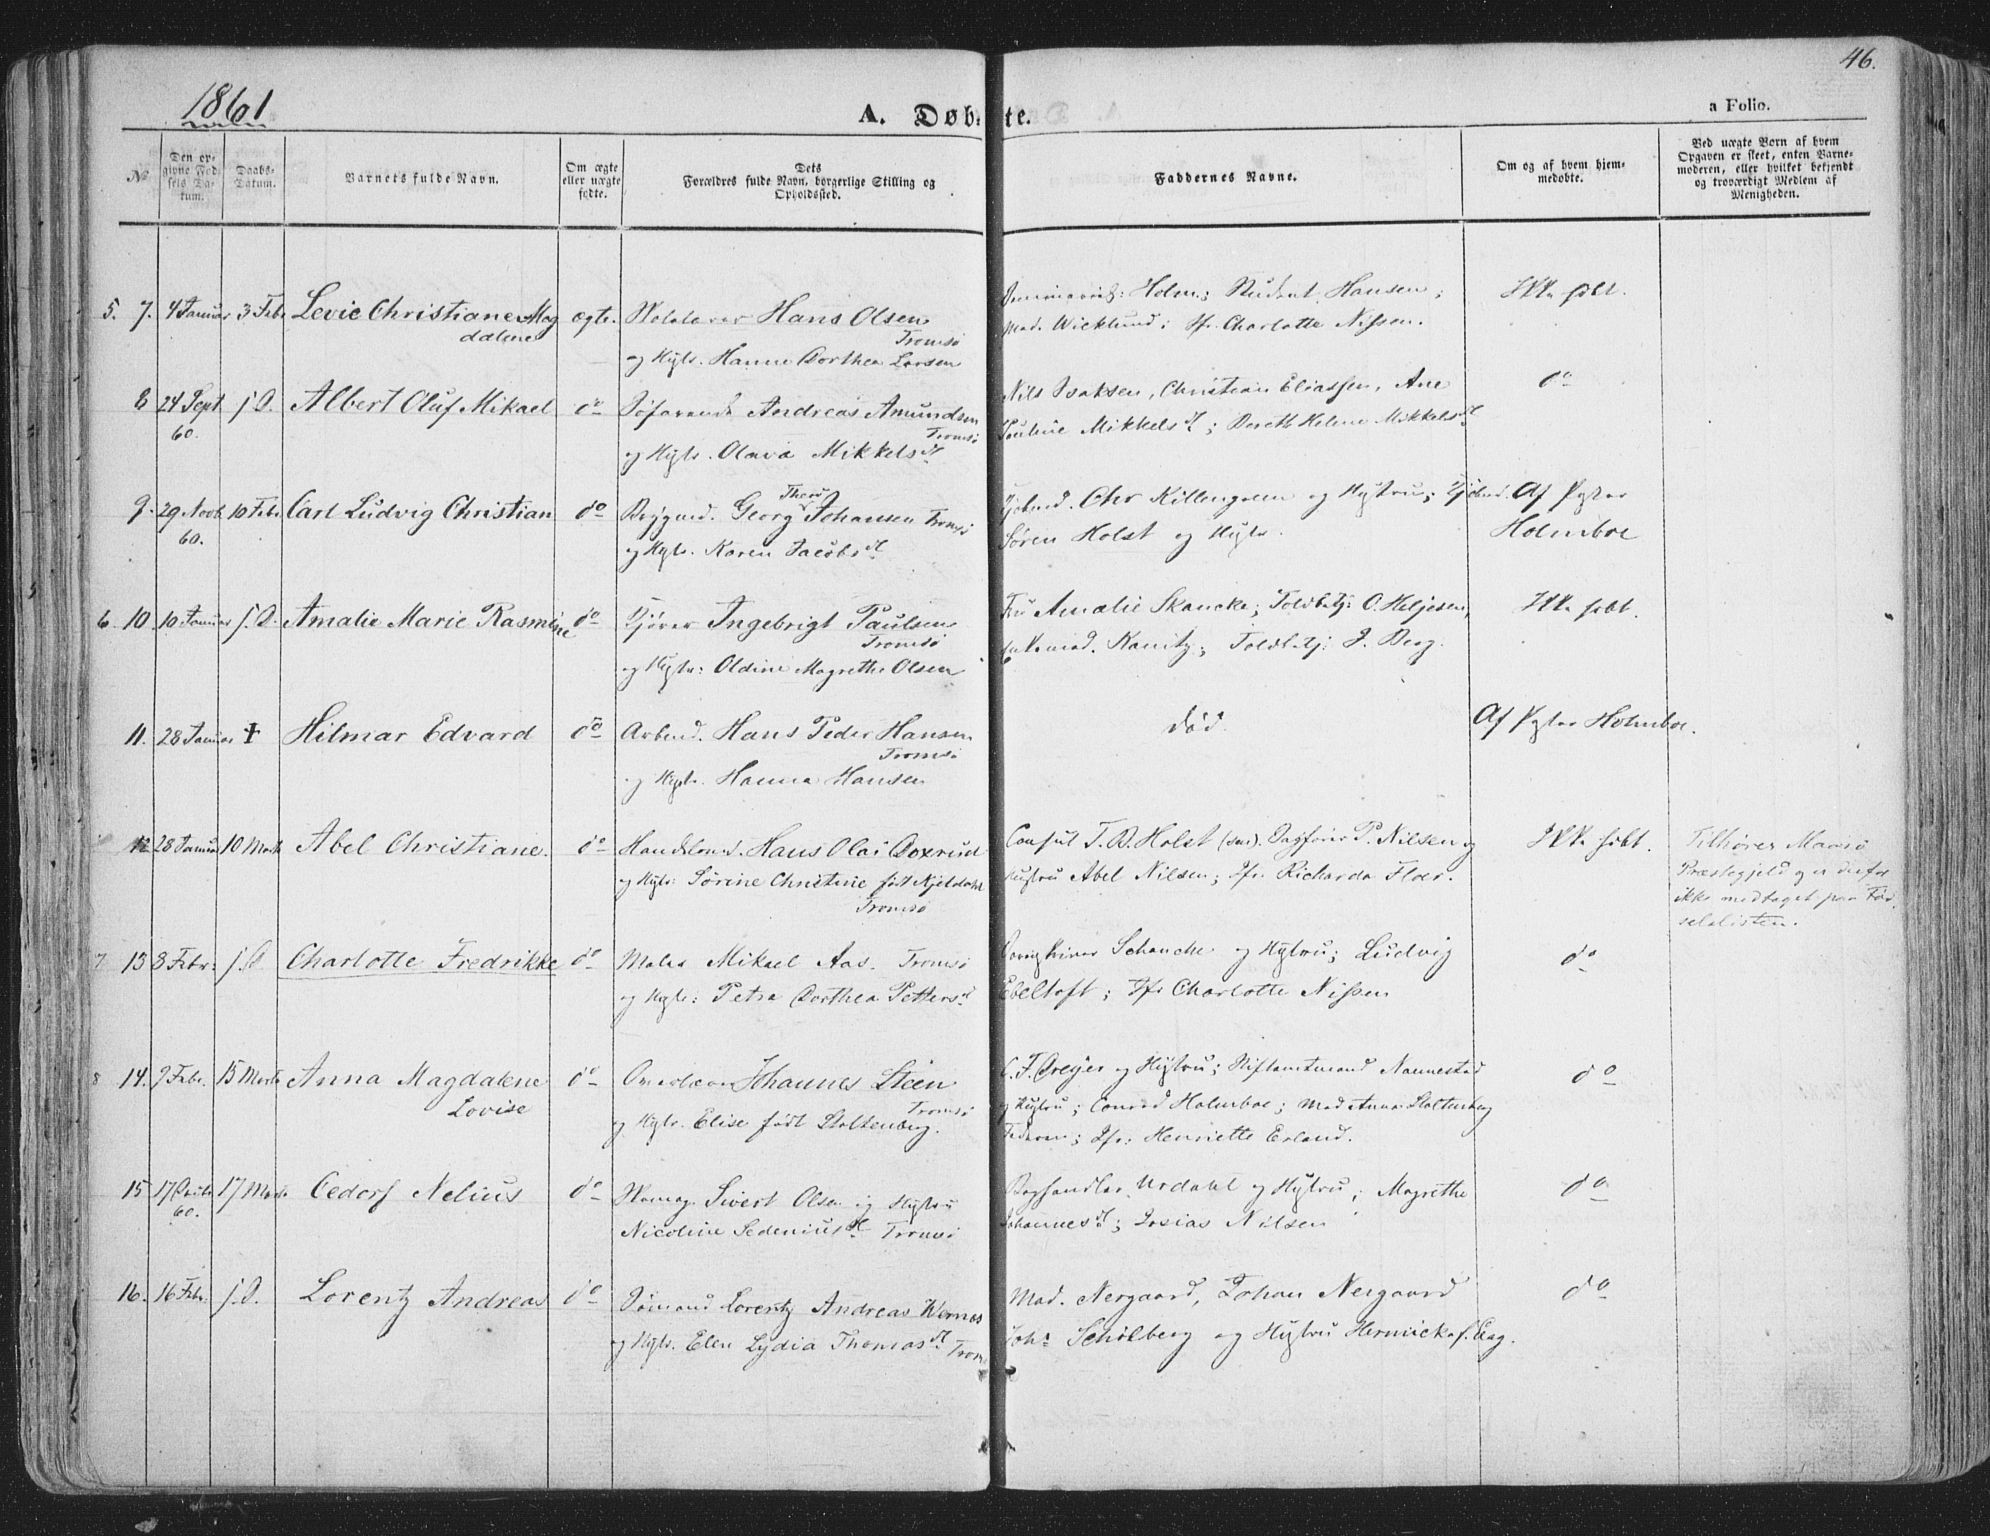 46.
1861
A. Døbte.
a Folio.
No
Den opgivne Fødsels Datum.
Daabs-Datum.
Barnets fulde Navn.
Om ægte eller uægte fødte.
Dets Forældres fulde Navn, borgerlige Stilling og Opholdssted.
Faddernes Navne.
Om og af hvem hjemmedøbte.
Ved uægte Børn af hvem Opgaven er skeet, enten Barnemoderen, eller hvilket bekjendt og troværdigt Medlem af Menigheden.
5. 7. 4 Januar 3 Febr Levie Christiane Mag ægte. Hans Olsen Holm; Student Hansen; Ikke høbt.
dalene Tromsø Mad. Wicklund; Jfr. Charlotte Nissen.
og Hst. Hanne Dorthea Larsen
8 24 Sept j.D. Albert Oluf Mikael do Andreas Amundsen Nils Isaksen, Christian Eliassen, Ane do
60. Tromsø Pauline Mikkelsdt; Bereth Helene Mikkelsdt
og Hst. Olava Mikkelsdt
9. 29 Novb 10 Febr Carl Ludvig Christian do Georg Johansen Tromsø Chr Killengreen og Hustru; Af
60. og Hst. Karen Jacobsdt Søren Holst og Hst. Holmboe
6 10. 10 Januar j.D. Amalie Marie Rasmine do Ingebrigt Paulsen Fru Amalie Skancke; Toldbetj: O. Heljesen, Ikke høbt.
Tromsø Kanitz; Toldbetj: J. Berg.
og Hst: Oldine Magrethe Olsen
11. 28 Januar † Hilmar Edvard do Arbmd. Hans Peder Hansen død. Af Holmboe.
Tromsø
og Hst. Hanna Hansen
12 28 Januar 10 Marts Abel Christiane. do Hans Olai Consul T. D. Holst P. Nilsen og Ikke høbt. Tilhører Maasø
og Hst: Sørine Christine født Kjeldahl Hustru Abel Nilsen; Jfr. Richarda Præstegjeld og er derfor
Tromsø ikke medtaget paa Fød-
selslisten.
7 13 8 Febr: j.D Charlotte Fredrikke do Maler Mikael Aas. Tromsø Schancke og Hustru; Ludvig do
og Hst: Petra Dorthea Pettersdt Ebeltoft; Jfr Charlotte Nissen
8 14. 9 Febr. 15 Marts Anna Magdalene do Overlærer Johannes Steen C. F. Dreyer og Hustru; Stiftamtmand Nannestad do
Lovise Tromsø og Hustru; Conrad Holmboe; Mad Anna Stoltenberg
og Hst. Elise født Stoltenberg. Jfr: Henriette Erland.
15 17 17 Marts Cedorf Nelius do Sivert Olsen og Hustru Boghandler Urdahl og Hustru; Magrethe do
60. Nicoline Sedeniusdt Tromsø Johannesdt; Josias Nilsen
16. 16 Febr. j.D. Lorentz Andreas do Sømand Lorentz Andreas Wernes Mad. Nergaard, Johan Nergaard do
og Hst. Elen Lydia Thomasdt Johs Schølberg og Hustru